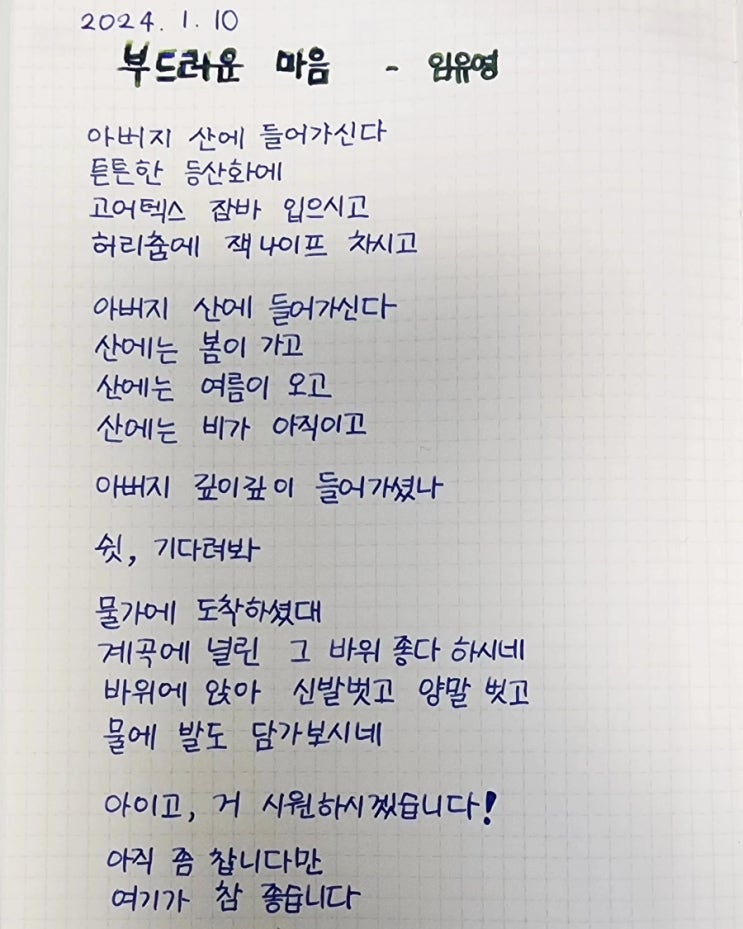 2024. 1. 10
부드러운 마음 - 임유영
아버지 산에 들어가신다
튼튼한 등산화에
고어텍스 잠바 입으시고
허리춤에 잭나이프 차시고
아버지 산에 들어가신다
산에는 봄이 가고
산에는 여름이 오고
산에는 비가 아직이고
아버지 깊이깊이 들어가셨나
쉿, 기다려봐
물가에 도착하셨대
계곡에 널린 그 바위 좋다 하시네
바위에 앉아 신발벗고 양말 벗고
물에 발도 담가보시네
아이고, 거 시원하시겠습니다!
아직 좀 찹니다만
여기가 참 좋습니다